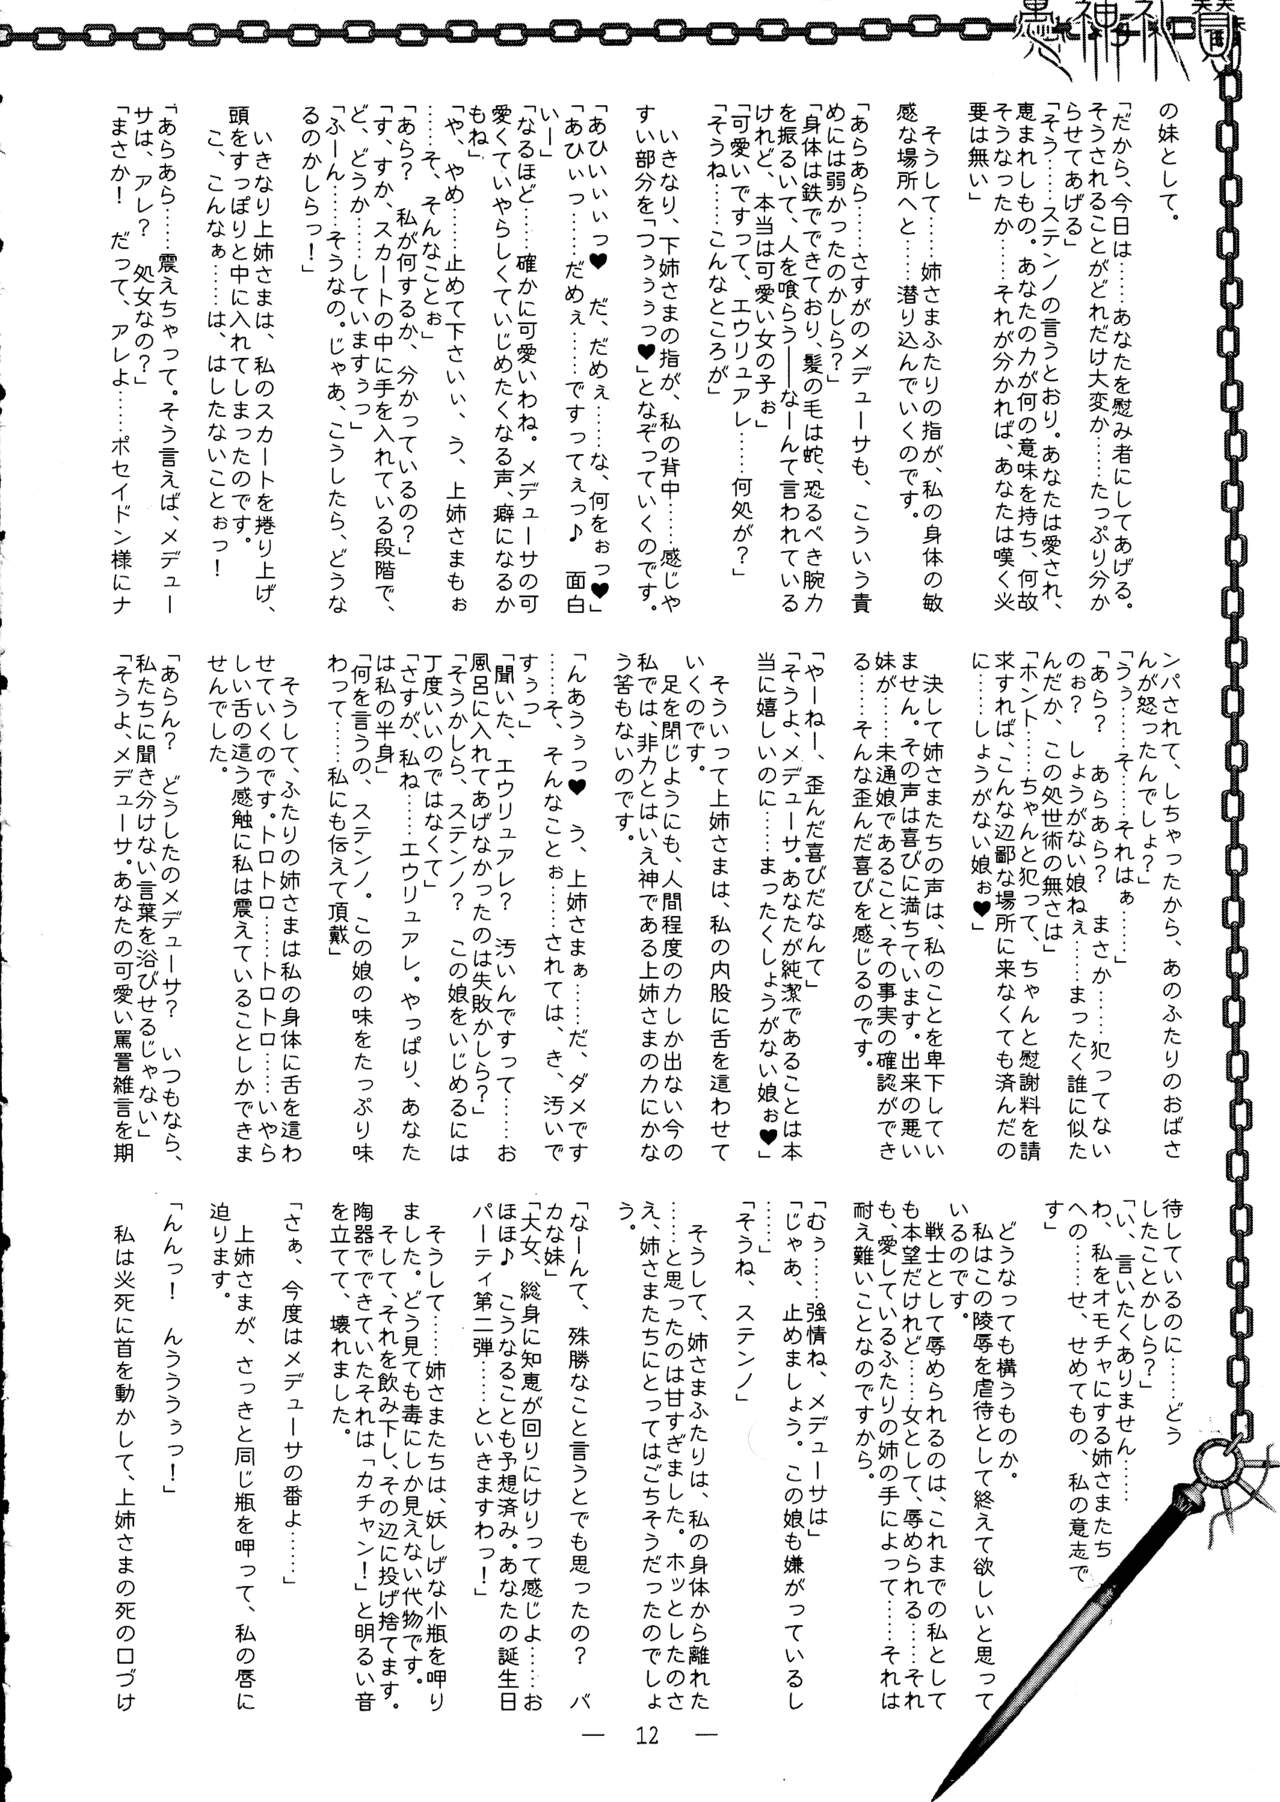 悪神礼賛
の妹として。
「だから、今日は……あなたを慰み者にしてあげる。
そうされることがどれだけ大変か……たっぷり分か
らせてあげる」
「そう……ステンノの言うとおり。あなたは愛され、
恵まれしもの。あなたの力が何の意味を持ち、何故
そうなったか……それが分かれば、あなたは嘆く必
要は無い」
　そうして……姉さまふたりの指が、私の身体の敏
感な場所へと……潜り込んでいくのです。
「あらあら……さすがのメデューサも、こういう責
めには弱かったのかしら？」
「身体は鉄でできており、髪の毛は蛇、恐るべき腕力
を振るいて、人を喰らう――なーんて言われている
けれど、本当は可愛い女の子ぉ」
「可愛いですって、エウリュアレ……何処が？」
「そうね……こんなところが」
　いきなり、下姉さまの指が、私の背中……感じや
すい部分を「つぅぅぅっ♥」となぞっていくのです。
「あひぃぃぃっ♥　だ、だめぇ……な、何をぉっ♥」
「あひぃっ……だめぇ……ですってぇっ♪　面白
いー」
「なるほど……確かに可愛いわね。メデューサの可
愛くていやらしくていじめたくなる声、癖になるか
もね」
「や、やめ……止めて下さいぃ、う、上姉さまもぉ
……そ、そんなことぉ」
「あら？　私が何するか、分かっているの？」
「す、すか、スカートの中に手を入れている段階で、
ど、どうか……していますぅっ」
「ふーん……そうなの。じゃあ、こうしたら、どうな
るのかしらっ！」
　いきなり上姉さまは、私のスカートを捲り上げ、
頭をすっぽりと中に入れてしまったのです。
　こ、こんなぁ……は、はしたないことぉっ！
「あらあら……震えちゃって。そう言えば、メデュー
サは、アレ？　処女なの？」
「まさか！　だって、アレよ……ポセイドン様にナ
ンパされて、しちゃったから、あのふたりのおばさ
んが怒ったんでしょ？」
「うぅ……そ……それはぁ……」
「あら？　あらあら？　まさか……犯ってない
のぉ？　しょうがない娘ねぇ……まったく誰に似た
んだか、この処世術の無さは」
「ホント……ちゃんと犯って、ちゃんと慰謝料を請
求すれば、こんな辺鄙な場所に来なくても済んだの
に……しょうがない娘ぉ♥」
　決して姉さまたちの声は、私のことを卑下してい
ません。その声は喜びに満ちています。出来の悪い
妹が……未通娘であること、その事実の確認ができ
る……そんな歪んだ喜びを感じるのです。
「やーねー、歪んだ喜びだなんて」
「そうよ、メデューサ。あなたが純潔であることは本
当に嬉しいのに……まったくしょうがない娘ぉ♥」
　そういって上姉さまは、私の内股に舌を這わせて
いくのです。
　足を閉じようにも、人間程度の力しか出ない今の
私では、非力とはいえ神である上姉さまの力にかな
う筈もないのです。
「んあうぅっ♥　う、上姉さまぁ……だ、ダメです
……そ、そんなことぉ……されては、き、汚いで
すぅっ」
「聞いた、エウリュアレ？　汚いんですって……お
風呂に入れてあげなかったのは失敗かしら？」
「そうかしら、ステンノ？　この娘をいじめるには
丁度いいのではなくて」
「さすが、私ね……エウリュアレ。やっぱり、あなた
は私の半身」
「何を言うの、ステンノ。この娘の味をたっぷり味
わって……私にも伝えて頂戴」
　そうして、ふたりの姉さまは私の身体に舌を這わ
せていくのです。トロトロ……トロトロ……いやら
しい舌の這う感触に私は震えていることしかできま
せんでした。
「あらん？　どうしたのメデューサ？　いつもなら、
私たちに聞き分けない言葉を浴びせるじゃない」
「そうよ、メデューサ。あなたの可愛い罵詈雑言を期
待しているのに……どう
したことかしら？」
「い、言いたくありません……
わ、私をオモチャにする姉さまたち
への……せ、せめてもの、私の意志で
す」
　どうなっても構うものか。
　私はこの陵辱を虐待として終えて欲しいと思って
いるのです。
　戦士として辱められるのは、これまでの私として
も本望だけれど……女として、辱められる……それ
も、愛しているふたりの姉の手によって……それは
耐え難いことなのですから。
「むぅ……強情ね、メデューサは」
「じゃあ、止めましょう。この娘も嫌がっているし
……」
「そうね、ステンノ」
　そうして、姉さまふたりは、私の身体から離れた
……と思ったのは甘すぎました。ホッとしたのさ
え、姉さまたちにとってはごちそうだったのでしょ
う。
「なーんて、殊勝なこと言うとでも思ったの？　バ
カな妹」
「大女、総身に知恵が回りにけりって感じよ……お
ほほ♪　こうなることも予想済み。あなたの誕生日
パーティ第二弾……といきますわっ！」
　そうして……姉さまたちは、妖しげな小瓶を呷り
ました。どう見ても毒にしか見えない代物です。
　そして、それを飲み下し、その辺に投げ捨てます。
陶器でできていたそれは「カチャン！」と明るい音
を立てて、壊れました。
「さぁ、今度はメデューサの番よ……」
　上姉さまが、さっきと同じ瓶を呷って、私の唇に
迫ります。
「んんっ！　んうううぅっ！」
　私は必死に首を動かして、上姉さまの死の口づけ
― 12 ―